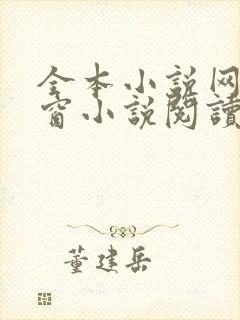 全本小说网
窗小说閱讀
董建岳